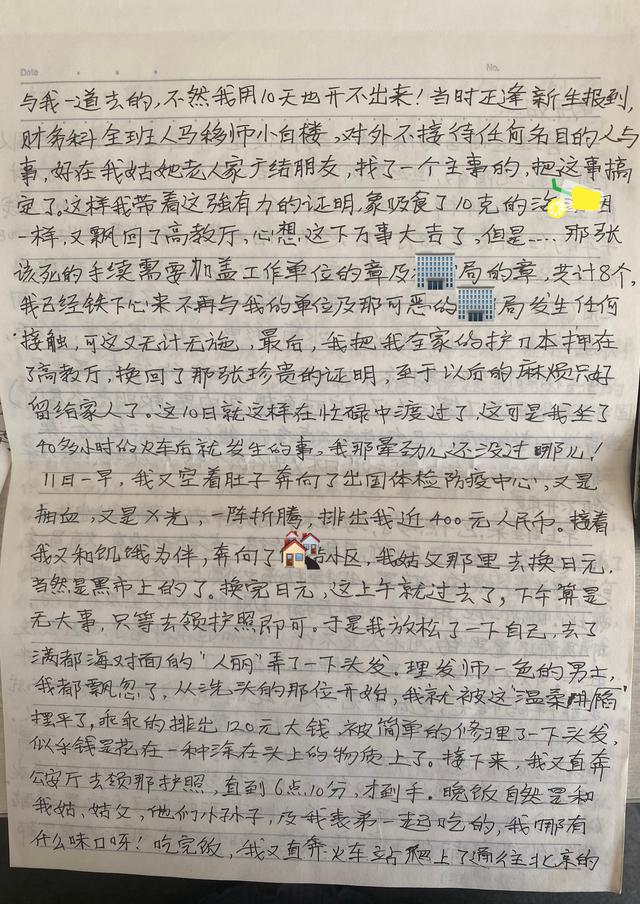 Date
No.
与我一道去的，不然我用10天也开不出来！当时正逢新生报到，
财务科全班人马移师小白楼，对外不接待任何名目的人与
事，好在我姑她老人家广结朋友，找了一个主事的，把这事搞
定了。这样我带着这强有力的证明，象吸食了10克的
一样，又飘回了高教厅，心想这下万事大吉了，但是.... 那张
该死的手续需要加盖工作单位的章及局的章，共计8个，
我已经铁下心来不再与我的单位及那可恶的局发生任何
接触，可这又无计无施，最后，我把我全家的护口本押在
了高教厅，换回了那张珍贵的证明，至于以后的麻烦只好
留给家人了。这10日就这样在忙碌中渡过了，这可是我坐了
40多小时的火车后就发生的事。我那晕劲儿还没过哪儿！
11日一早，我又空着肚子奔向了出国体检防疫中心，又是
抽血，又是X光，一阵折腾，排出我近400元人民币。接着
我又和饥饿为伴，奔向了小区，我姑父那里去换日元，
当然是黑市上的了。换完日元，这上午就过去了，下午算是
无大事，只等去领护照即可。于是我放松了一下自己，去了
满都海对面的“人丽”弄了一下头发。理发师一色的男士，
我都飘忽了，从洗头的那位开始，我就被这“温柔阴陷”
摆平了，乖乖的排出120元大钱，被简单的修理了一下头发，
似乎钱是花在一种涂在头上的物质上了。接下来，我又直奔
公安厅去领那护照，直到6点10分，才到手。晚饭自然是和
我姑、姑父，他们小孙子，及我表弟一起吃的，我哪有
什么味口呀！吃完饭，我又直奔火车站爬上了通往北京的